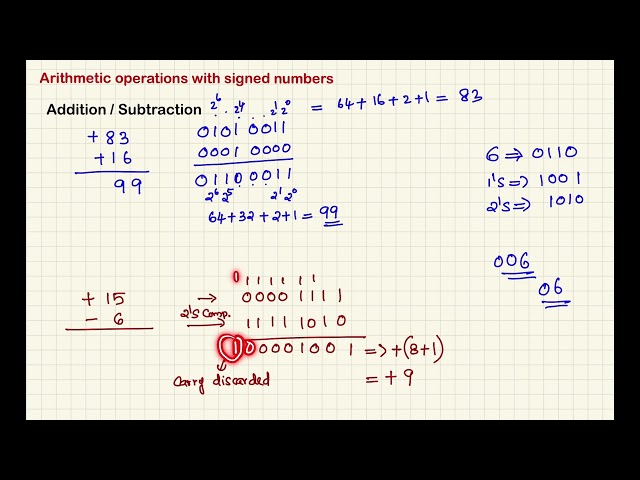 Arithmetic operations with signed numbers
Addition / Subtraction
2^6 2^4 2^1 2^0
= 64+16+2+1 = 83
+83
0101 0011
+16
0001 0000
99
0110 0011
2^6 2^5 2^1 2^0
64+32+2+1 = 99
6 ⇒ 0110
1's ⇒ 1001
2's ⇒ 1010
006
06
0 1 1 1 1 1 1
+ 15
→ 0000 1111
- 6
2's Comp. 1111 1010
1 0000 1001 ⇒ +(8+1)
carry discarded
= +9